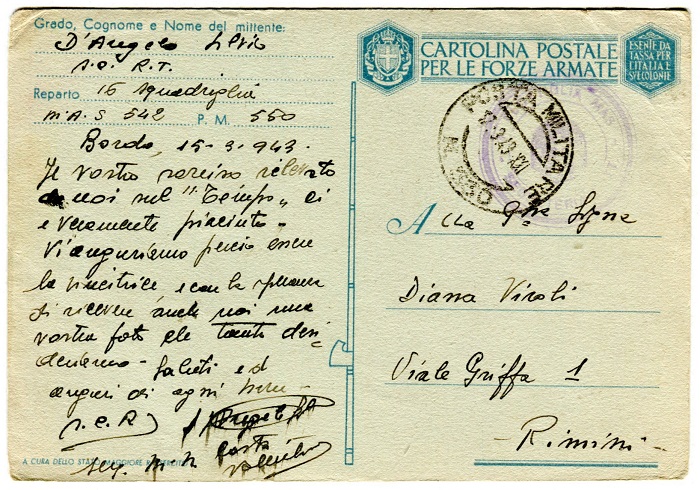 Grado, Cognome e Nome del mittente:
D'Angelo Silvio
s.c. R.T.
Reparto 16 squadriglia
M.A.S 542 P. M. 550
Bordo, 15-3-943.
Il vostro sorriso rilevato
da noi sul "Tempo" ci
è veramente piaciuto -
Vi auguriamo perciò essere
la vincitrice e con la
di ricevere anche noi una
vostra foto che tanto desi
deriamo - Saluti ed
auguri di ogni bene -
s.c.R D'Angelo
Serg. M. N. Costa
A CURA DELLO STATO MAGGIORE R. ESERCITO
CARTOLINA POSTALE
PER LE FORZE ARMATE
ESENTE DA
TASSA PER
L'ITALIA E
SUE COLONIE
POSTA MILITARE
3.43.XXI
Alla Gma Sigra
Diana Viroli
Viale Griffa 1
Rimini -